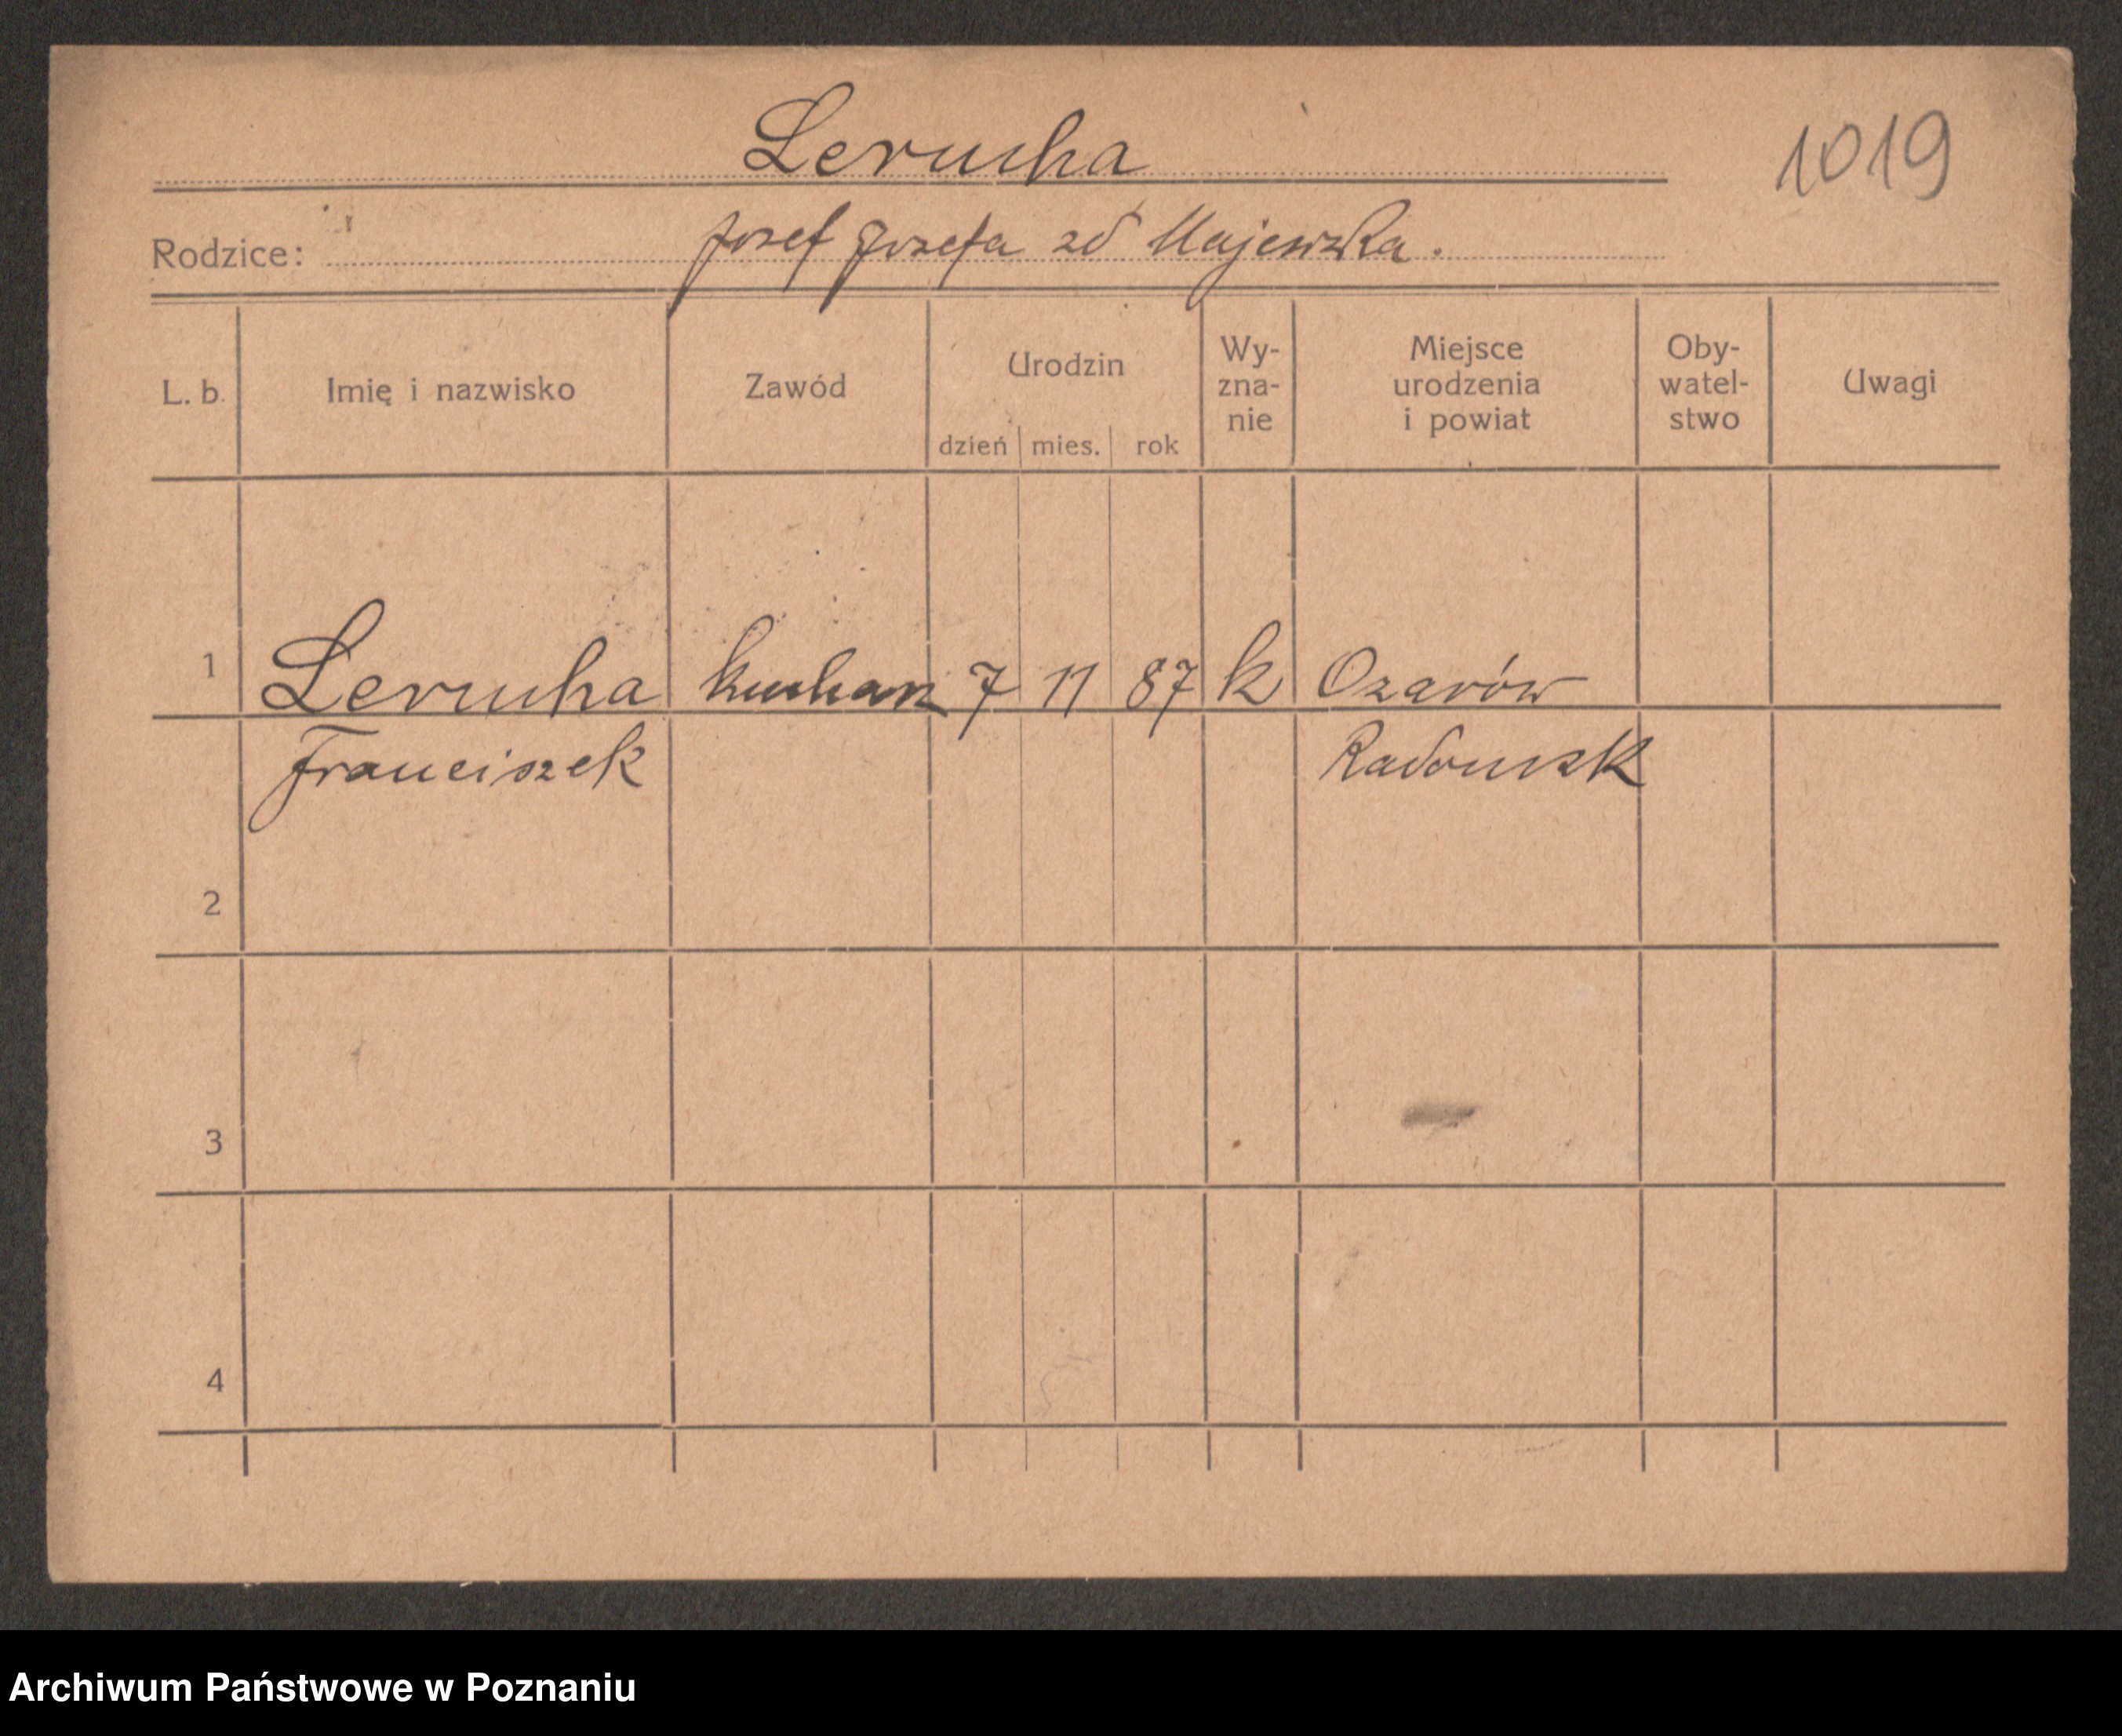 Lerucha
1019
Rodzice: Josef Jozefa zd Majewska.
L. b. Imię i nazwisko Zawód Urodzin dzień mies. rok Wy-zna-nie Miejsce urodzenia i powiat Oby-watel-stwo Uwagi
1 Lerucha kucharz 7 11 87 k Ozarów
Franciszek Radomsk
2
3
4
Archiwum Państwowe w Poznaniu